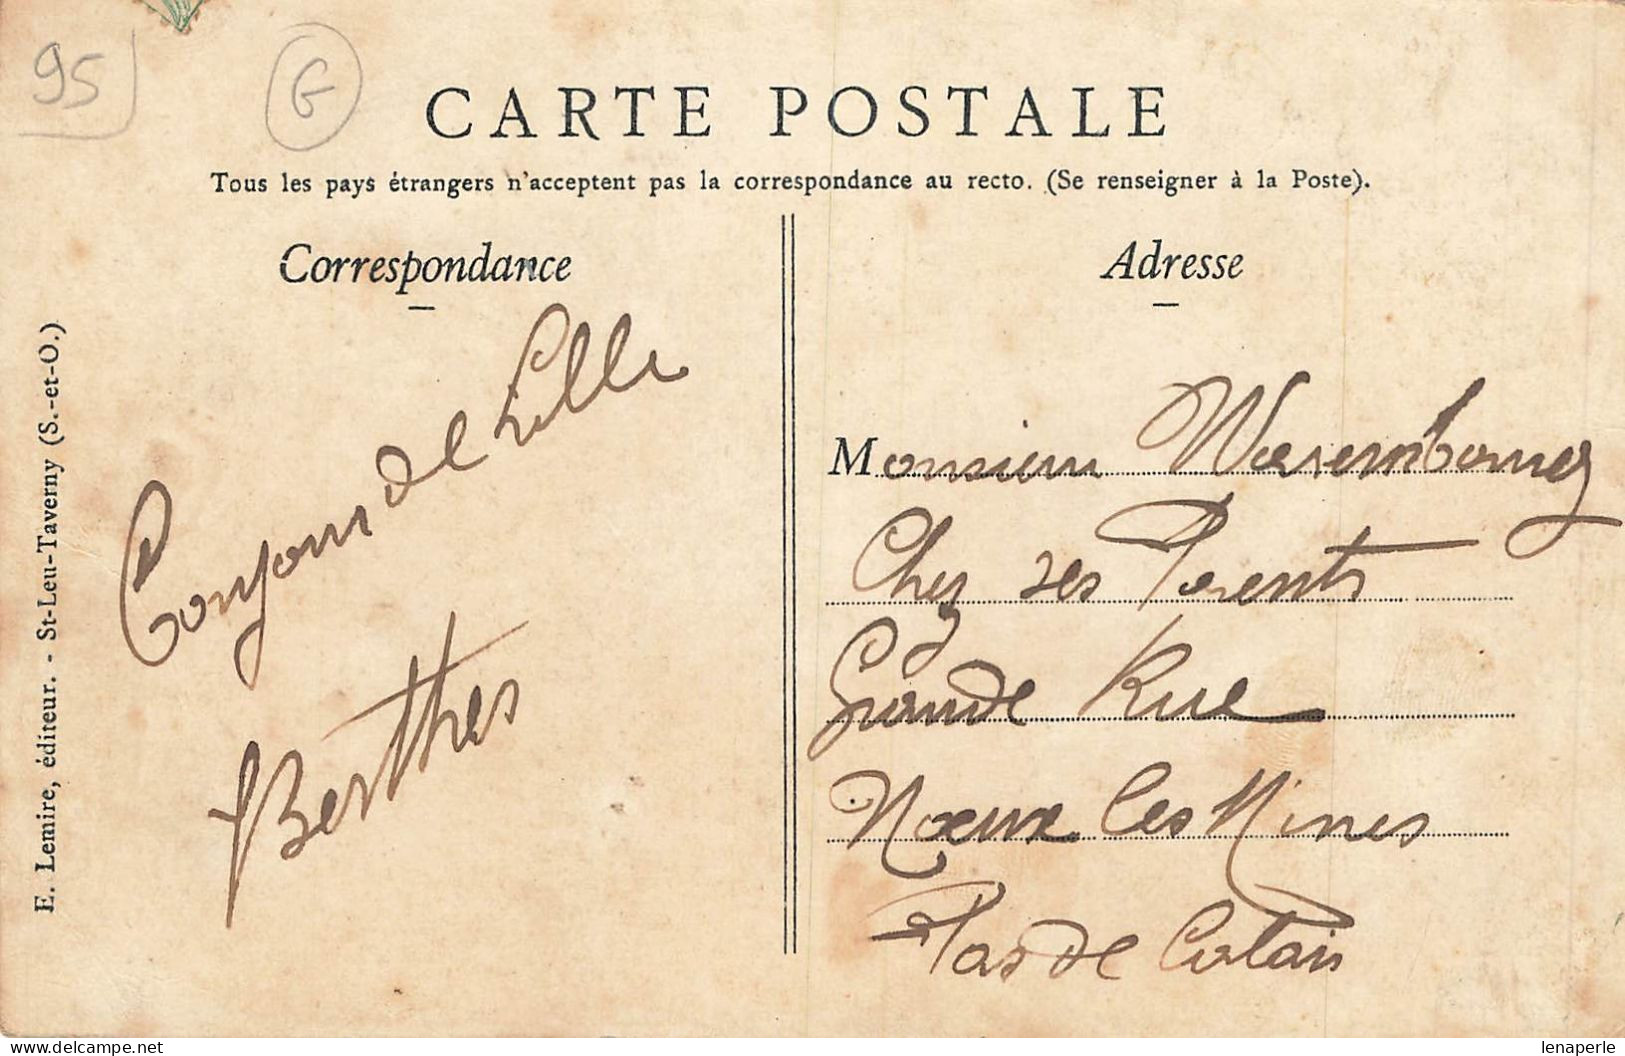 95
G
CARTE POSTALE
Tous les pays étrangers n'acceptent pas la correspondance au recto. (Se renseigner à la Poste).
Correspondance
de Lille
E. Lemire, éditeur. - St-Leu-Taverny (S.-et-O.)
Adresse
Monsieur Warembourg
Chez ses Parents
Grande Rue
Nœux les Mines
Pas de Calais
delcampe.net
lenaperle